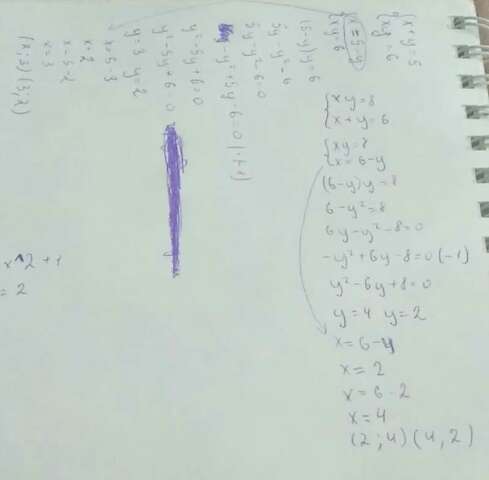 {x+y=5
{xy=6
{x=5-y
{xy=6
(5-y)y=6
5y-y²=6
5y-y²-6=0
-y²+5y-6=0 (-1)
y²-5y+6=0
y²-5y+6=0
y=3 y=2
x=5-3
x=2
x=5-2
x=3
(2;3)(3;2)
{xy=8
{x+y=6
{xy=8
{x=6-y
(6-y)y=8
6-y²=8
6y-y²-8=0
-y²+6y-8=0 (-1)
y²-6y+8=0
y=4 y=2
x=6-4
x=2
x=6-2
x=4
(2;4)(4,2)
x^2+1
=2